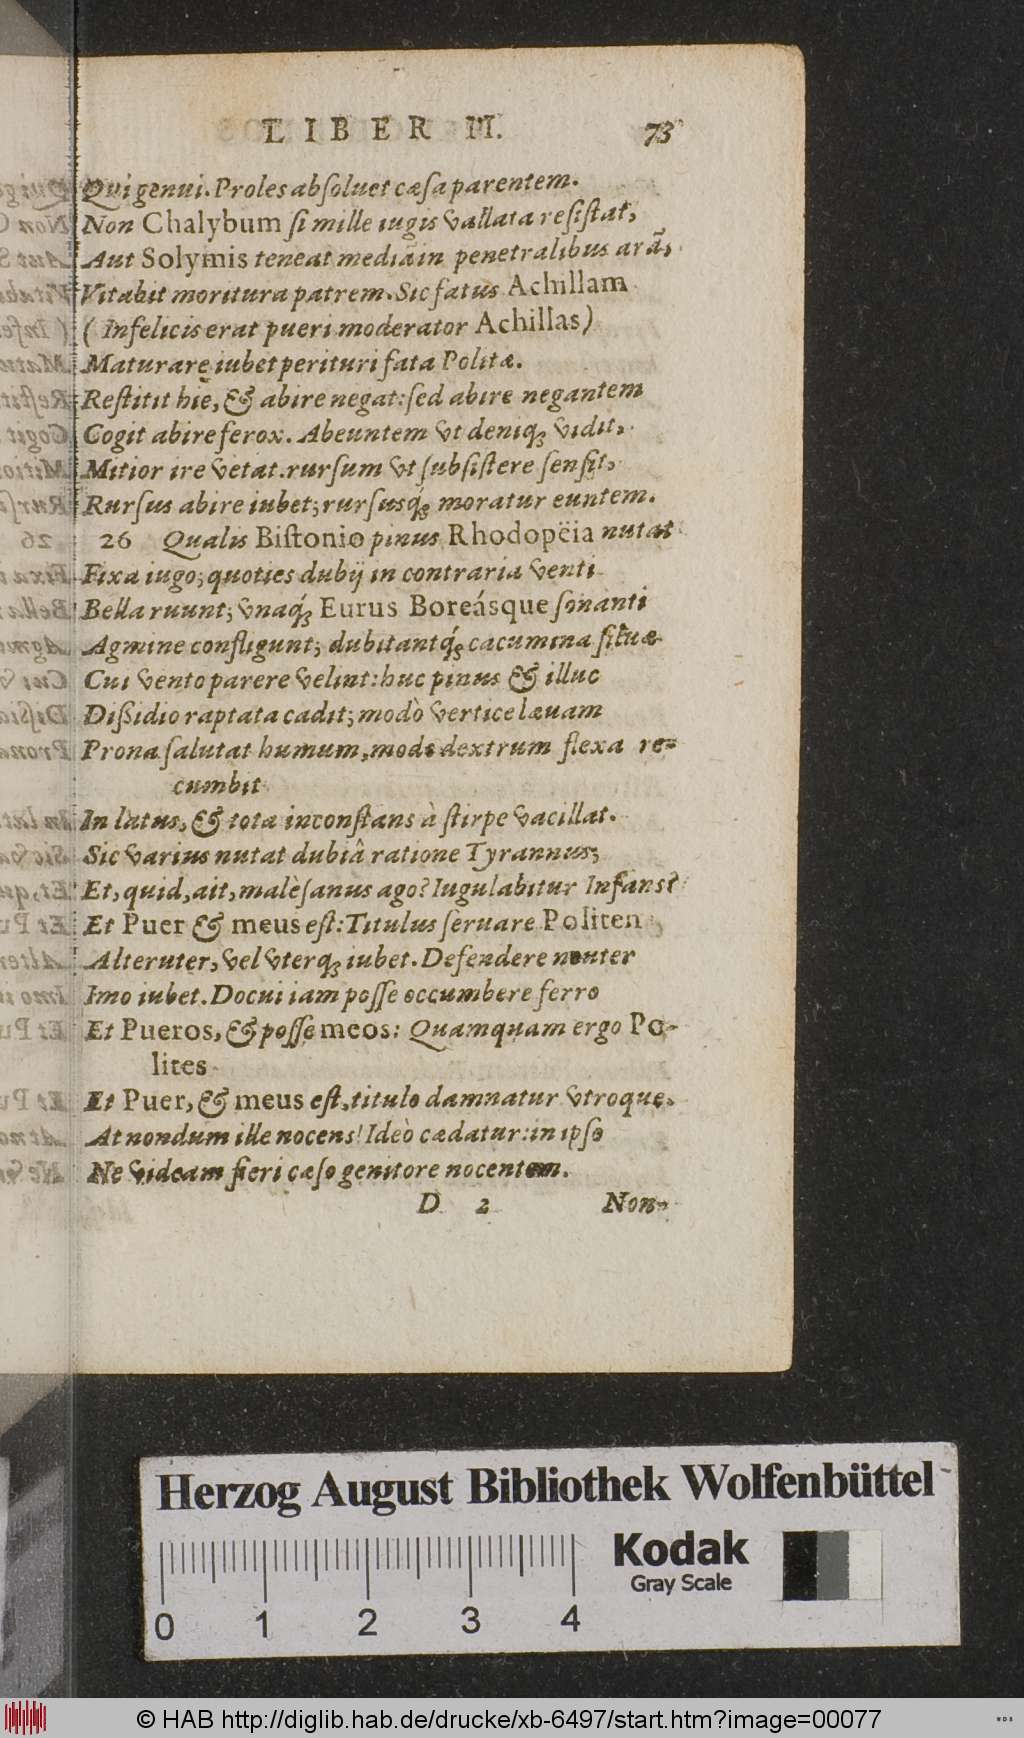 LIBER II. 73
Qui genui. Proles absoluet cæsa parentem.
Non Chalybum si mille iugis vallata resistat,
Aut Solymis teneat mediã in penetralibus arã,
Vitabit moritura patrem. Sic fatus Achillam
( Infelicis erat pueri moderator Achillas)
Maturare iubet perituri fata Politæ.
Restitit hic, & abire negat: sed abire negantem
Cogit abire ferox. Abeuntem vt deniq; vidit,
Mitior ire vetat. rursum vt subsistere sensit,
Rursus abire iubet; rursusq́; moratur euntem.
26 Qualis Bistonio pinus Rhodopëia nutat
Fixa iugo; quoties dubij in contraria venti
Bella ruunt; vnaq́; Eurus Boreásque sonanti
Agmine confligunt; dubitantq́; cacumina siluæ
Cui vento parere velint: huc pinus & illuc
Dißidio raptata cadit; modò vertice læuam
Prona salutat humum, modo dextrum flexa re-
cumbit
In latus, & tota inconstans à stirpe vacillat.
Sic varius nutat dubiâ ratione Tyrannus;
Et, quid, ait, malè sanus ago? Iugulabitur Infans?
Et Puer & meus est: Titulus seruare Politen
Alteruter, vel vterq; iubet. Defendere neuter
Imo iubet. Docui iam posse occumbere ferro
Et Pueros, & posse meos: Quamquam ergo Po-
lites
Et Puer, & meus est, titulo damnatur vtroque.
At nondum ille nocens! Ideò cædatur: in ipso
Ne videam fieri cæso genitore nocentem.
D 2 Non-
Herzog August Bibliothek Wolfenbüttel
Kodak
Gray Scale
0 1 2 3 4
© HAB http://diglib.hab.de/drucke/xb-6497/start.htm?image=00077